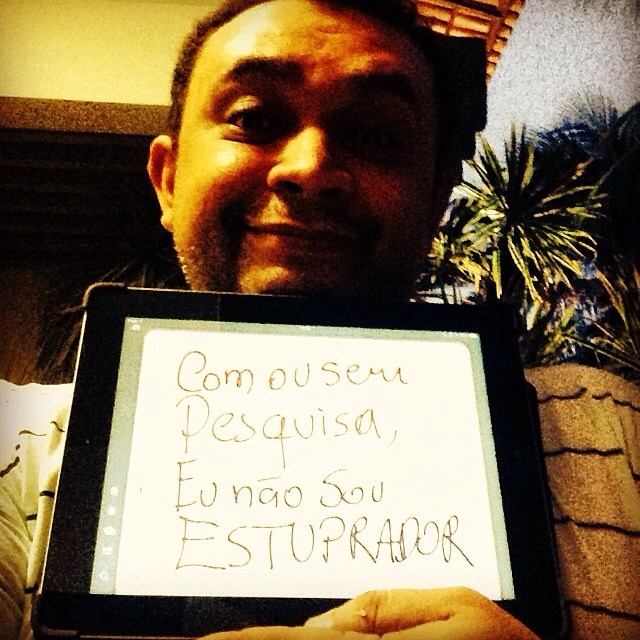 Com ou sem
Pesquisa,
Eu não Sou
ESTUPRADOR